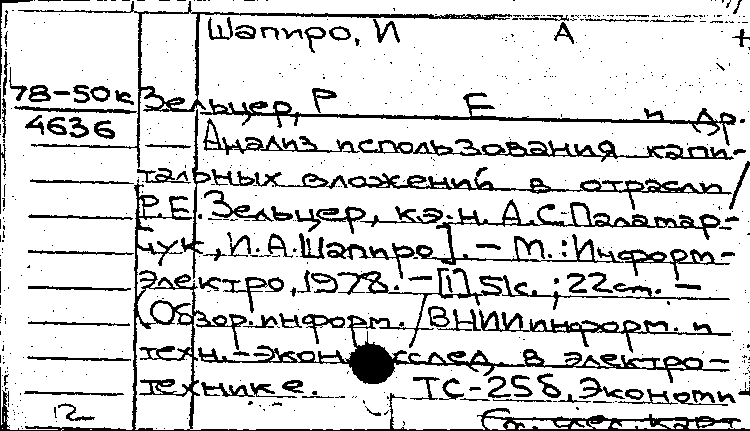 Шапиро, И А +
78-50к Зельцер, Р Е и др.
4636 Анализ использования капи-
тальных вложений в отрасли /
Р.Е. Зельцер, к.э.н. А.С. Паламар-
чук, И.А. Шапиро]. - М.: Информ-
электро, 1978. - [1], 51с.; 22см. -
(Обзор. информ. / ВНИИ информ. и
техн.-экон. исслед. в электро-
технике. ТС-25б, Экономи-
12 См. след. карт.